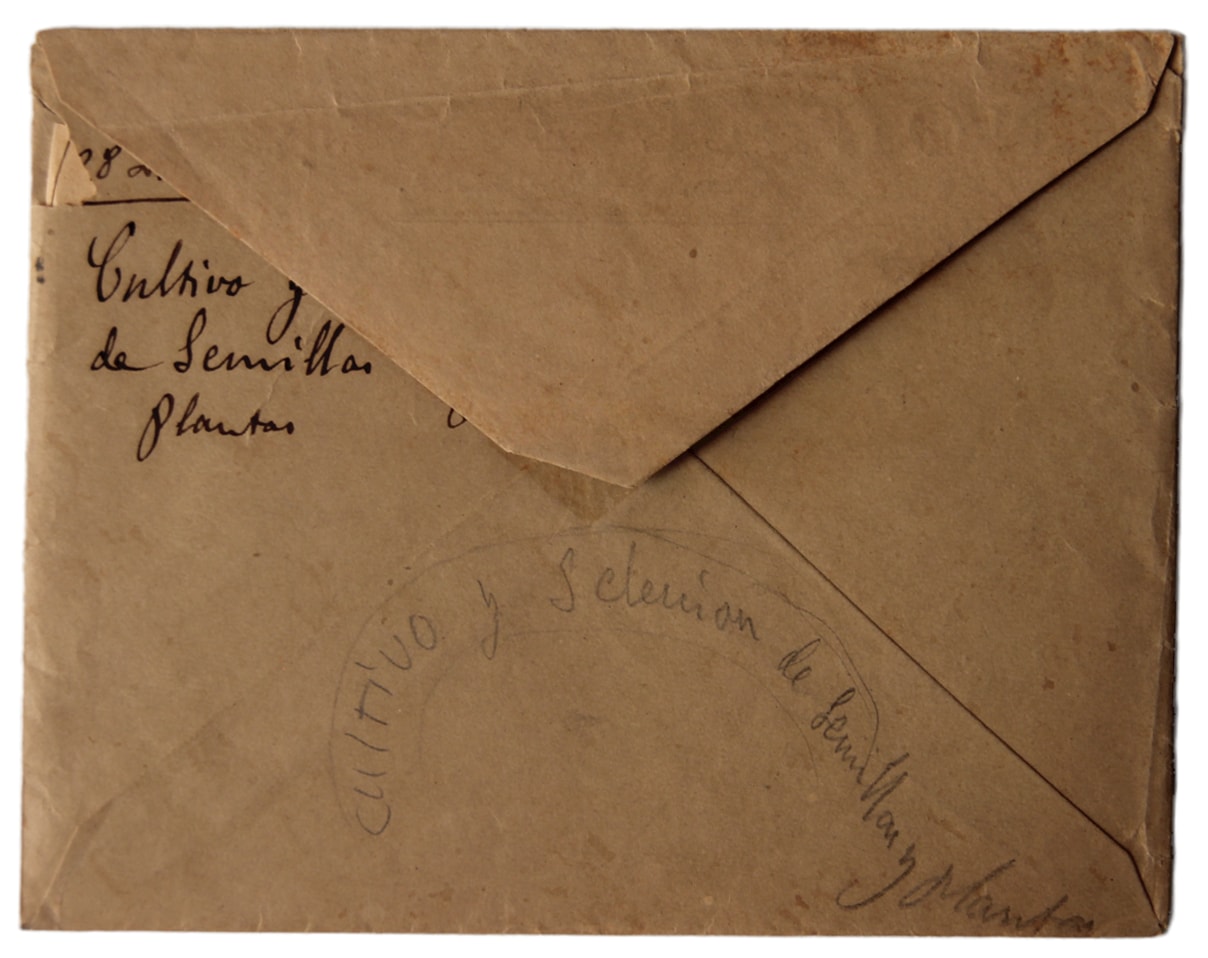 282.
Cultivo y
de Semillas
Plantas
Cultivo y Seleccion de Semillas y Plantas